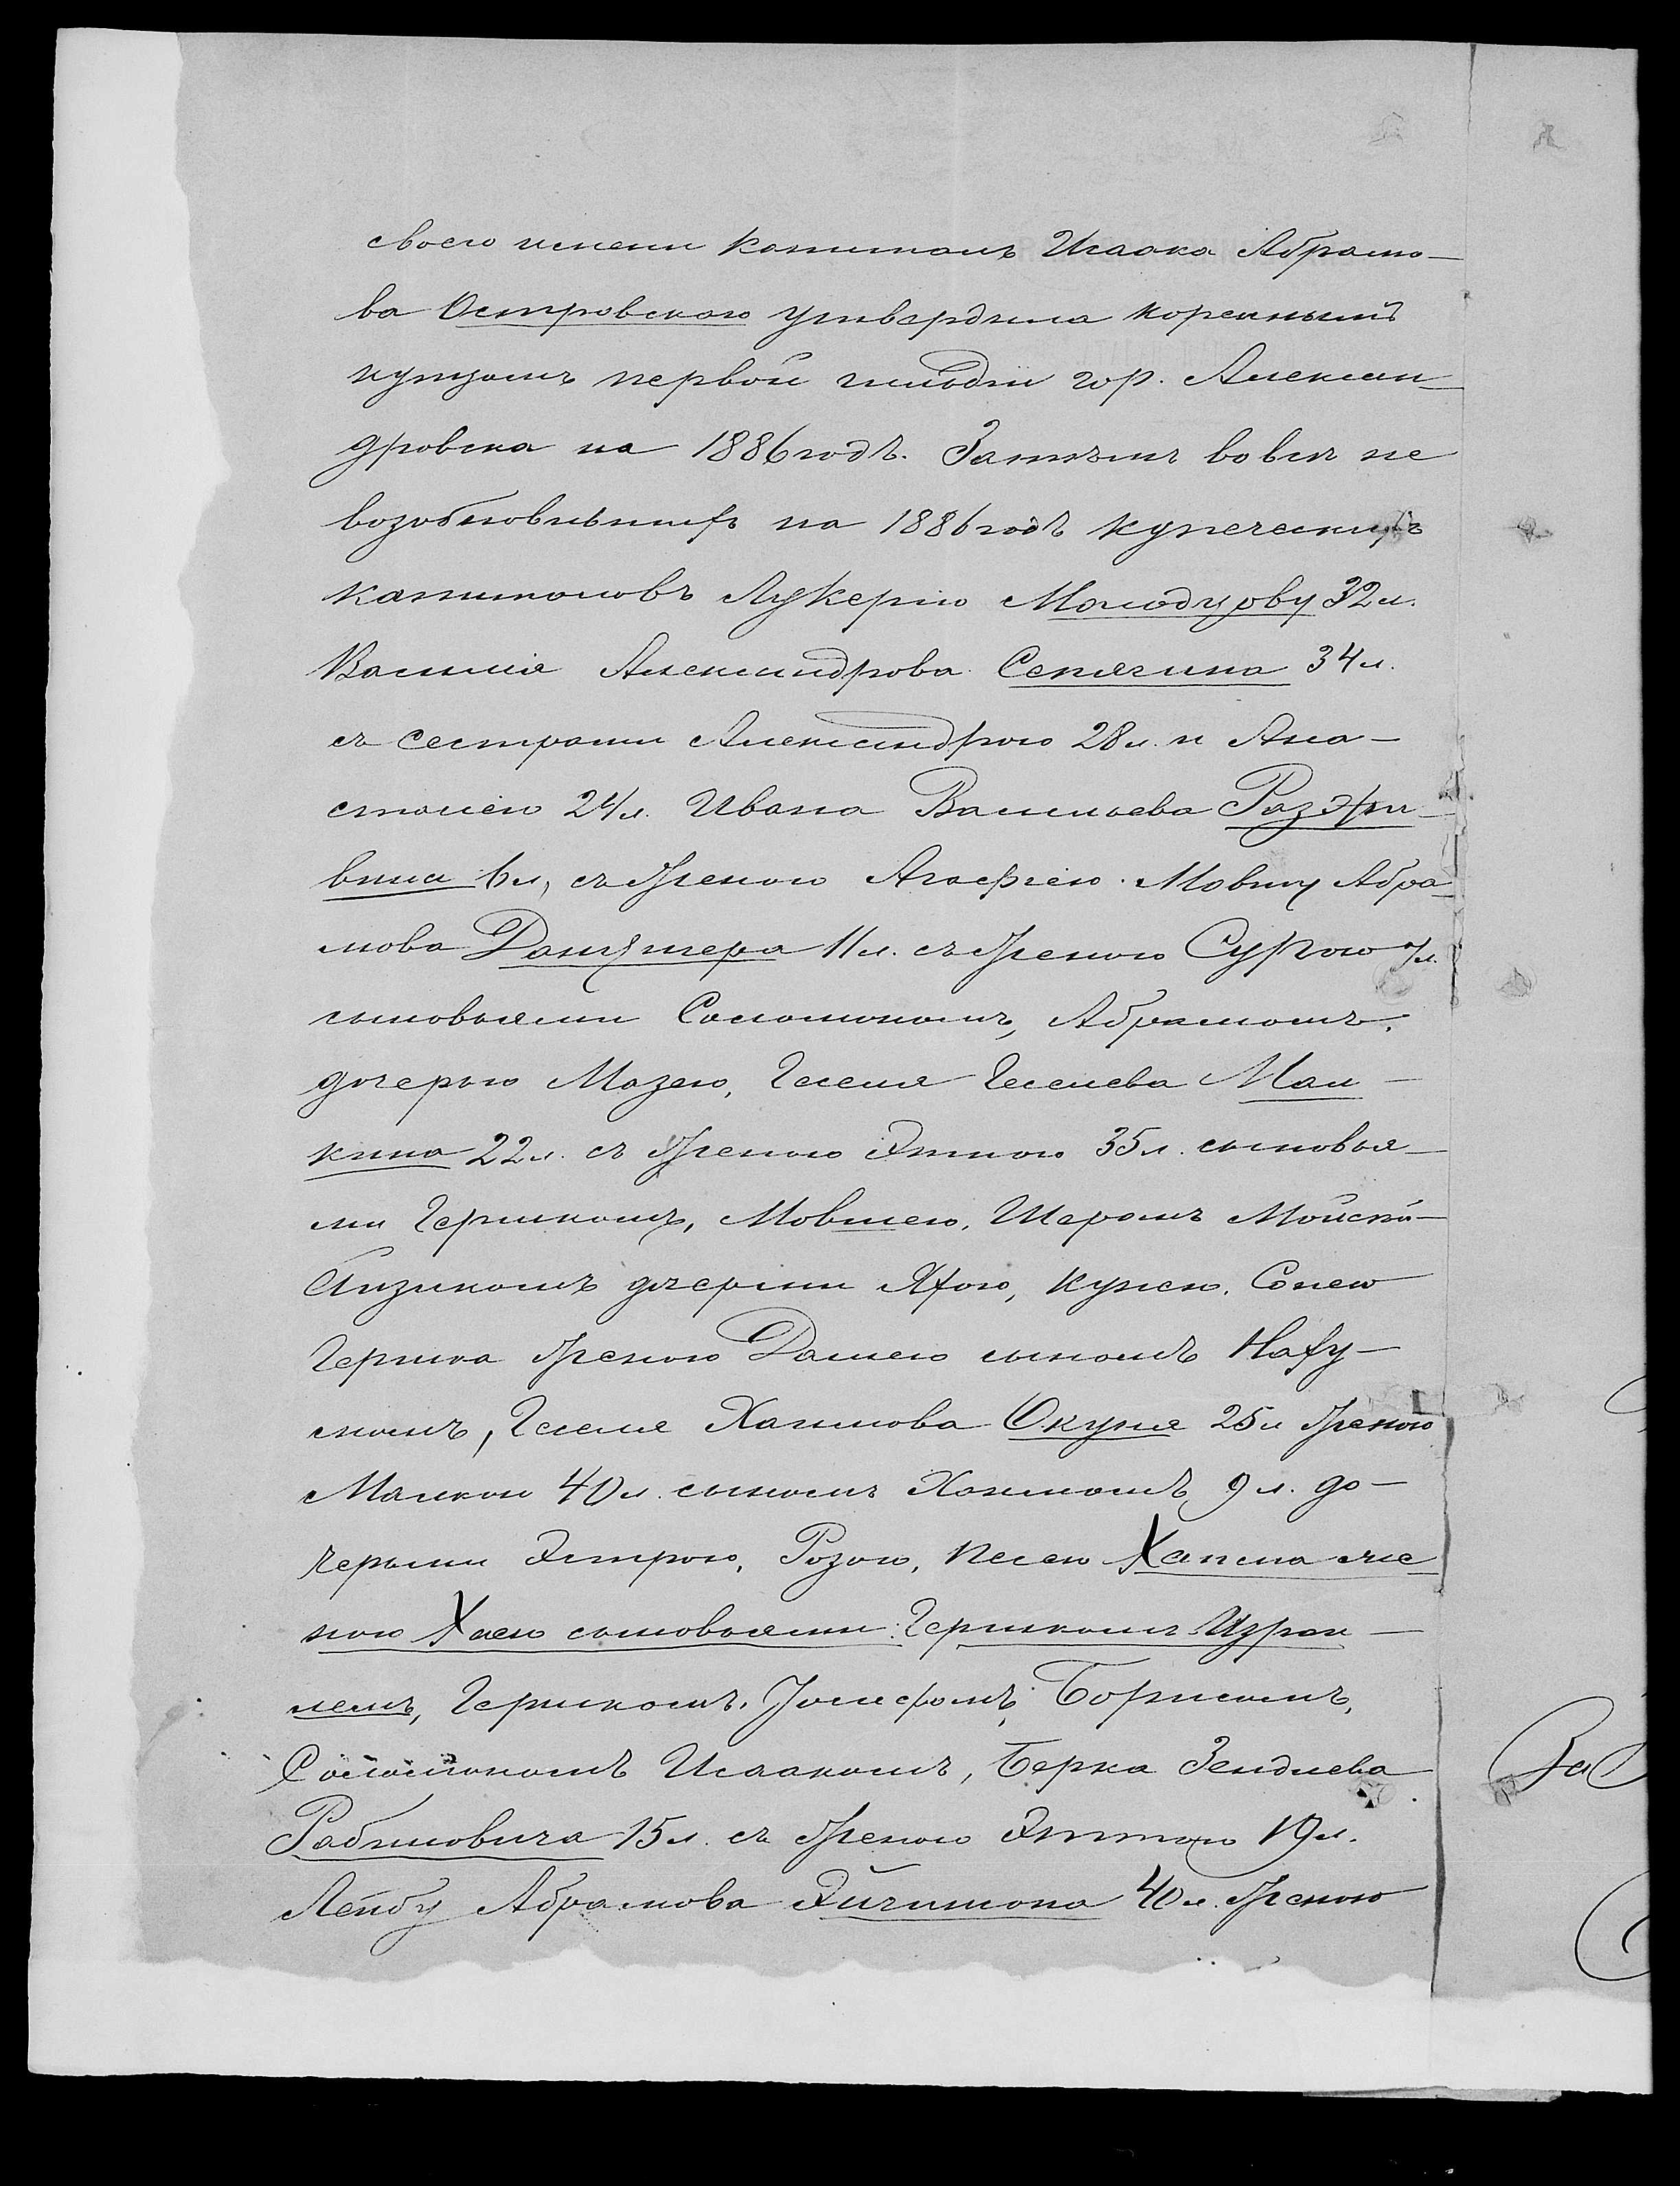 своего имени капиталъ Исаака Абрамо-
ва Островскаго утвердила кореннымъ
купцомъ первой гильдіи гор. Алексан-
дровска на 1886 годъ. Затѣмъ вовсе не
возобновившихъ на 1886 годъ купеческихъ
капиталовъ Лукерію Молодцову 32 л.
Василія Александрова Сепягина 34 л.
съ сестрами Александрою 28 л. и Ана-
стасіею 24 л. Ивана Васильева
6 л, съ женою Агафіею. Мовшу Абра-
мова Данцигера 11 л. съ женою Сурою л.
сыновьями Соломономъ, Абрамомъ,
дочерью Мазею, Геселя Геселева Мал-
кина 22 л. съ женою Этлою 35 л. сыновья-
ми Гершкомъ, Мовшею,
Айзикомъ дочерьми Хаею, Сонею
Гершка женою Дашею сыномъ Наху-
момъ, Геселя Хаимова Окуня 25 л женою
Малкою 40 л. сыномъ Хаимомъ 9 л. до-
черьми Эстрою, Розою, Песею Хаима же-
ною Хаею сыновьями: Гершкомъ Изра-
лемъ, Гершкомъ, Іосифомъ, Борисомъ,
Соломономъ Исаакомъ, Берка Зенделева
Рабиновича 15 л. съ женою Эттою 19 л.
Лейбу Абрамова 40 л. женою
За